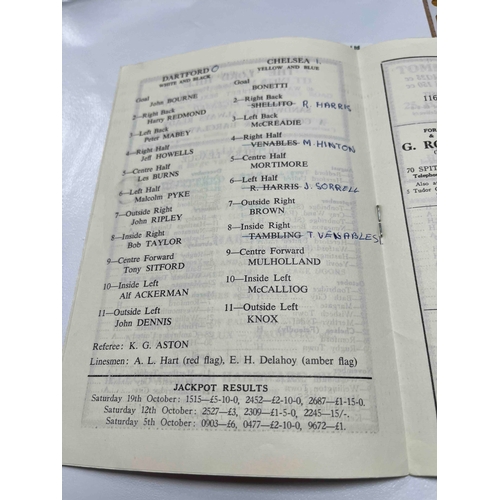 DARTFORD 0
WHITE AND BLACK
Goal
John BOURNE
2—Right Back
Harry REDMOND
3—Left Back
Peter MABEY
4—Right Half
Jeff HOWELLS
5—Centre Half
Les BURNS
6—Left Half
Malcolm PYKE
7—Outside Right
John RIPLEY
8—Inside Right
Bob TAYLOR
9—Centre Forward
Tony SITFORD
10—Inside Left
Alf ACKERMAN
11—Outside Left
John DENNIS
CHELSEA 1.
YELLOW AND BLUE
Goal
BONETTI
2—Right Back
SHELLITO R. HARRIS
3—Left Back
McCREADIE
4—Right Half
VENABLES M. HINTON
5—Centre Half
MORTIMORE
6—Left Half
R. HARRIS J. SORRELL
7—Outside Right
BROWN
8—Inside Right
TAMBLING T VENABLES
9—Centre Forward
MULHOLLAND
10—Inside Left
McCALLIOG
11—Outside Left
KNOX
Referee: K. G. ASTON
Linesmen: A. L. Hart (red flag), E. H. Delahoy (amber flag)
JACKPOT RESULTS
Saturday 19th October: 1515—£5-10-0, 2452—£2-10-0, 2687—£1-15-0.
Saturday 12th October: 2527—£3, 2309—£1-5-0, 2245—15/-.
Saturday 5th October: 0903—£6, 0477—£2-10-0, 9672—£1.
116
FOR
&
G. RO
70 SPIT
Telephone
Also a
3 Tudor